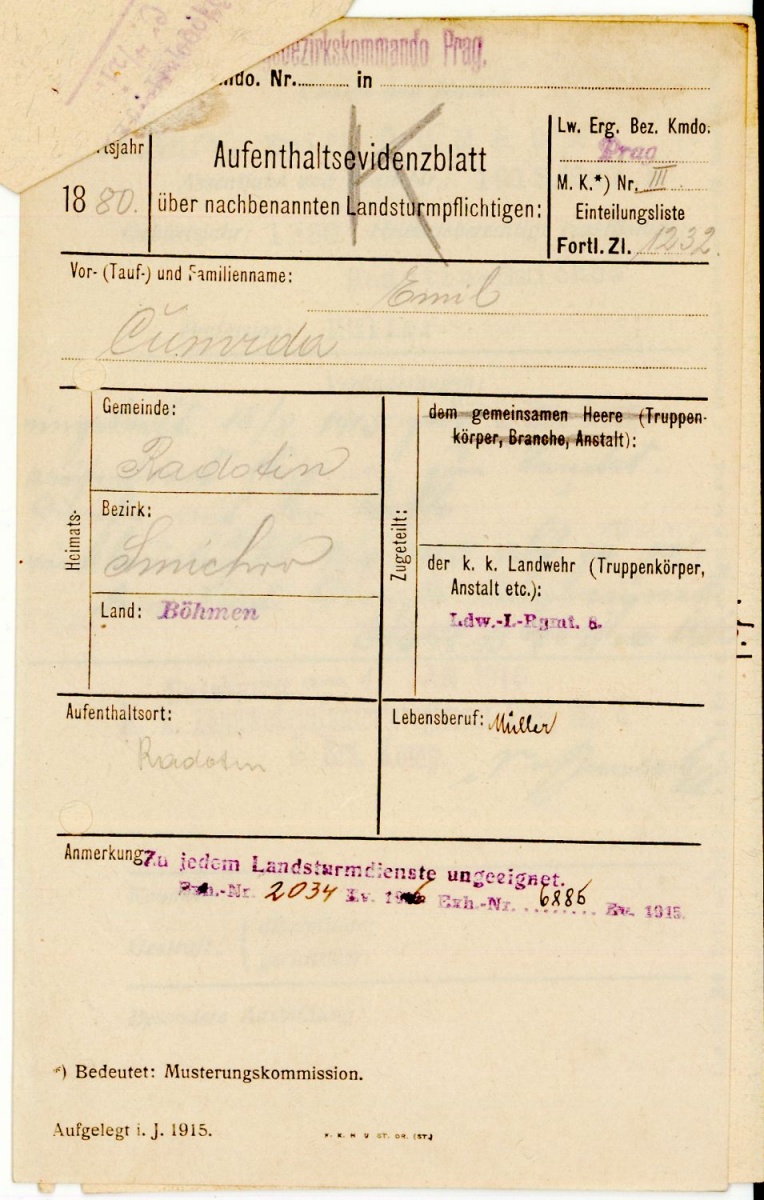 bezirkskommando Prag.
mdo. Nr. in
rtsjahr
1880.
K
Aufenthaltsevidenzblatt
über nachbenannten Landsturmpflichtigen:
Lw. Erg. Bez. Kmdo.
Prag
M. K.*) Nr. III
Einteilungsliste
Fortl. Zl. 1232.
Vor- (Tauf-) und Familienname:
Emil
Heimats-
Gemeinde:
Radotin
Bezirk:
Smichov
Land: Böhmen
Zugeteilt:
dem gemeinsamen Heere (Truppen-
körper, Branche, Anstalt):
der k. k. Landwehr (Truppenkörper,
Anstalt etc.):
Ldw.-I.-Rgmt. 8.
Aufenthaltsort:
Radotin
Lebensberuf: Müller
Anmerkung
Zu jedem Landsturmdienste ungeeignet.
Exh.-Nr. 2034 Ev. 1916 Exh.-Nr. 6886 Ev. 1915.
*) Bedeutet: Musterungskommission.
Aufgelegt i. J. 1915.